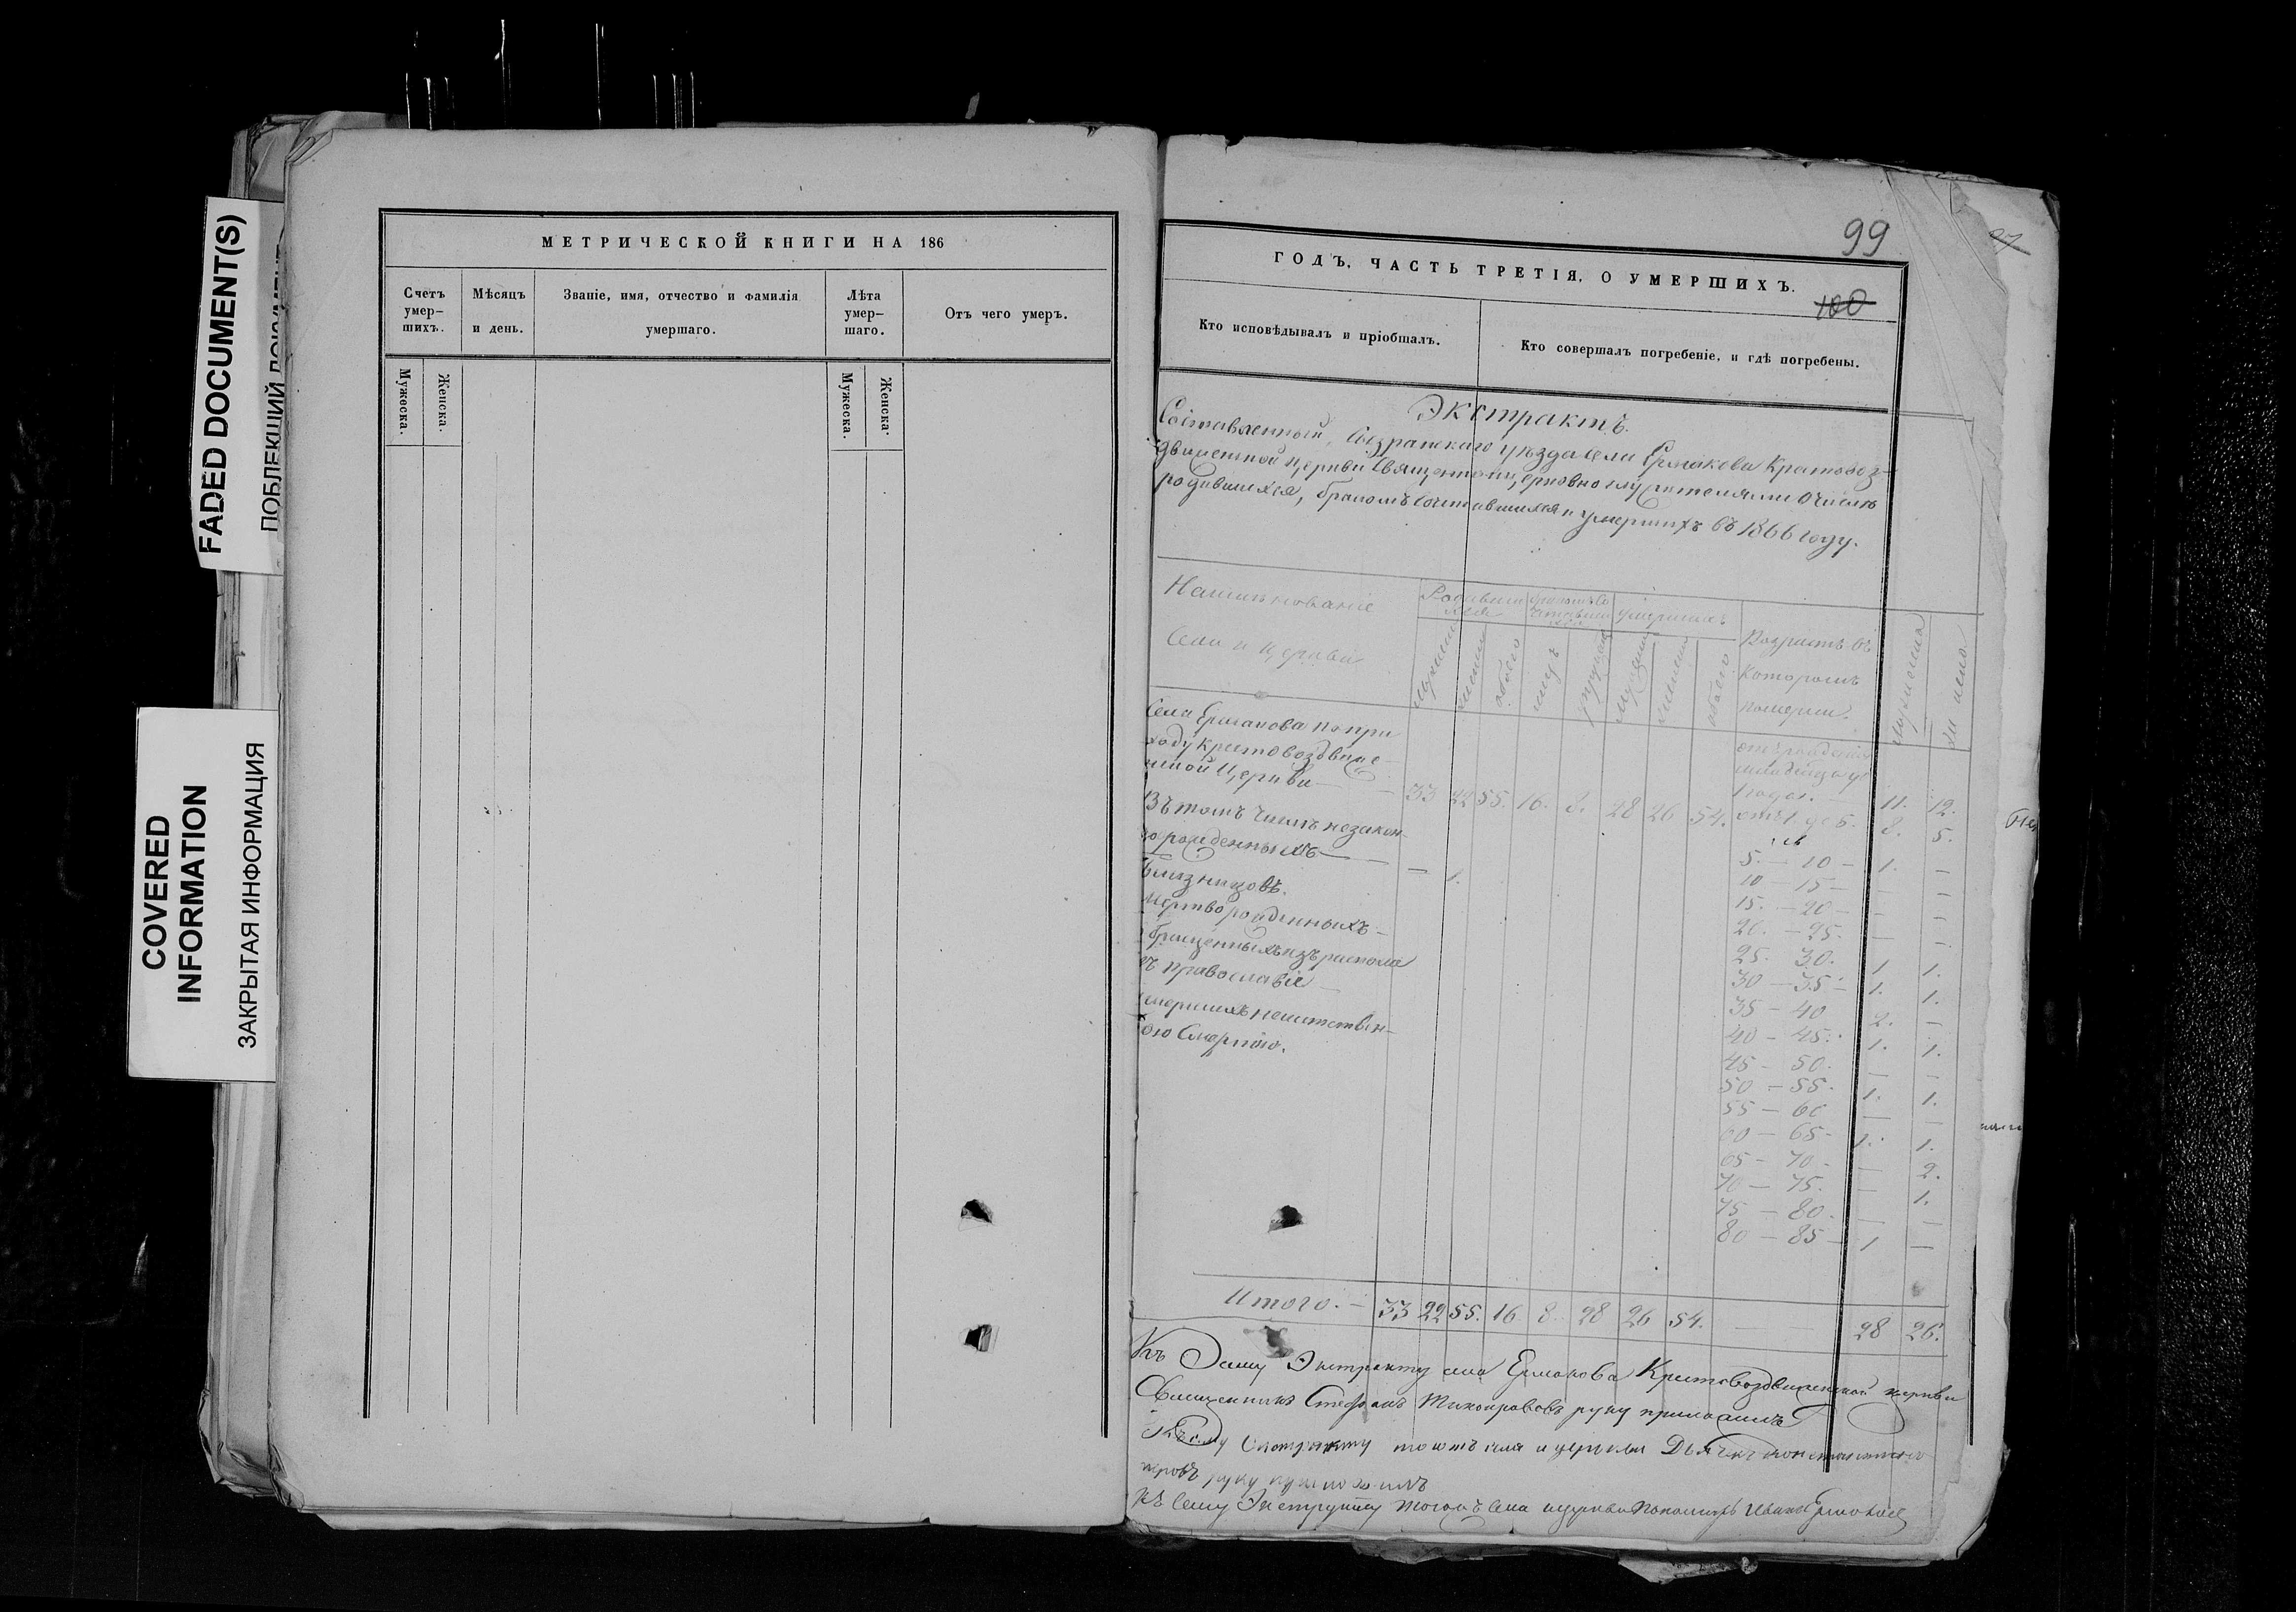 FADED DOCUMENT(S)
COVERED
INFORMATION
ЗАКРЫТАЯ ИНФОРМАЦИЯ
МЕТРИЧЕСКОЙ КНИГИ НА 186
Счетъ умер-шихъ.
Мѣсяцъ и день.
Званіе, имя, отчество и фамилія умершаго.
Лѣта умер-шаго.
Отъ чего умеръ.
Мужеска.
Женска.
Мужеска.
Женска.
99
ГОДЪ, ЧАСТЬ ТРЕТІЯ, О УМЕРШИХЪ.
100
Кто исповѣдывалъ и пріобщалъ.
Кто совершалъ погребеніе, и гдѣ погребены.
Экстрактъ.
Составленный, Сызранскаго уѣзда села Ермакова Крестовоз-
движенской церкви Священно церковно служителями о числѣ
родившихся, бракомъ сочетавшихся и умершихъ въ 1866 году.
Наименованіе
Села и церкви
Родивших
умершихъ
обоего
Возрастъ въ
которомъ
померли.
Села Ермакова по при
ходу Крестовоздвиже
нской Церкви — 33 22 55. 16. 8. 28 26 54.
11. 12.
отъ 1 до 5. 8. 5.
Въ томъ числѣ незакон-
норожденныхъ — — 1.
5. — 10 — 1. —
Близнецовъ.
10 — 15 — — —
Мертворожденныхъ —
15. — 20 — — —
20. — 25. — —
25. 30. 1. 1.
въ православіе —
30 — 35 — 1. 1.
35 — 40 2. —
40 — 45. 1. 1.
ною Смертію.
45 — 50. — —
50 — 55. 1. 1.
55 — 60 — —
60 — 65 — 1. 1.
65 — 70 — — 2.
70 — 75. — 1.
75 — 80. — —
80 — 85 — 1 —
Итого. — 33 22 55. 16 8. 28 26 54. — — 28 26.
Къ Сему Экстракту села Ермакова Крестовоздвиженской церкви
Священникъ Стефанъ Тихонравовъ руку приложилъ
Къ сему Экстракту тогожъ села и церкви Дьячекъ
руку приложилъ
Къ Сему Экстракту тогожъ Села и церкви Пономарь Иванъ